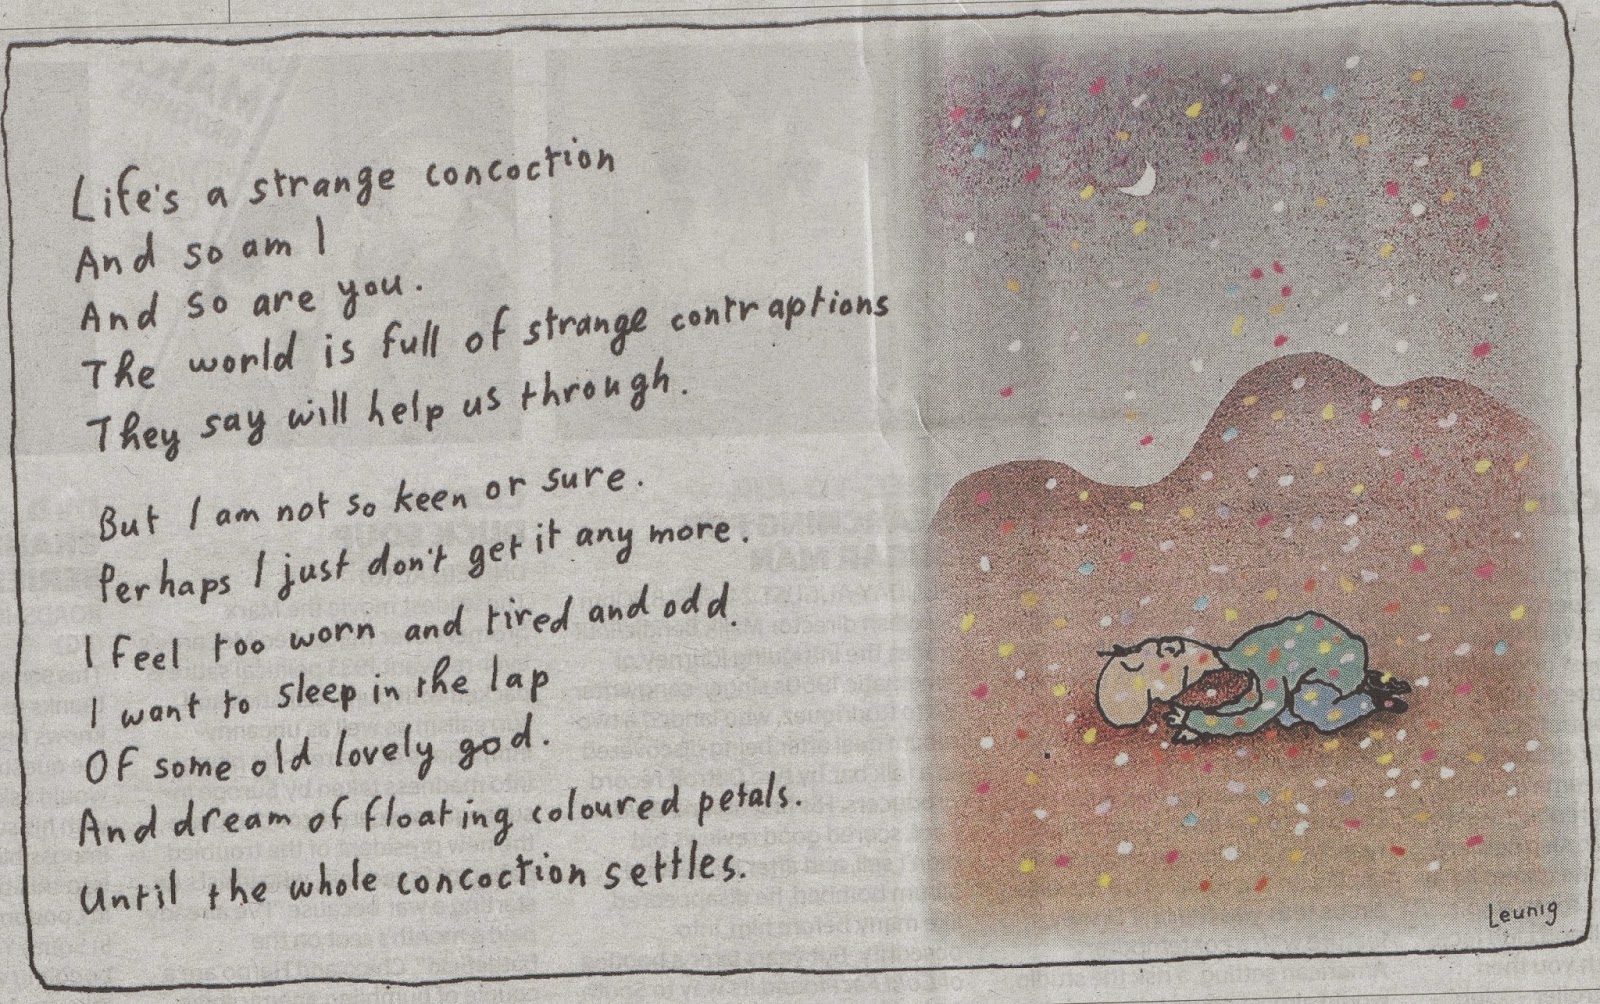 Life's a strange concoction
And so am I
And so are you.
The world is full of strange contraptions
They say will help us through.
But I am not so keen or sure.
Perhaps I just don't get it any more.
I feel too worn and tired and odd.
I want to sleep in the lap
Of some old lovely god.
And dream of floating coloured petals.
Until the whole concoction settles.
Leunig